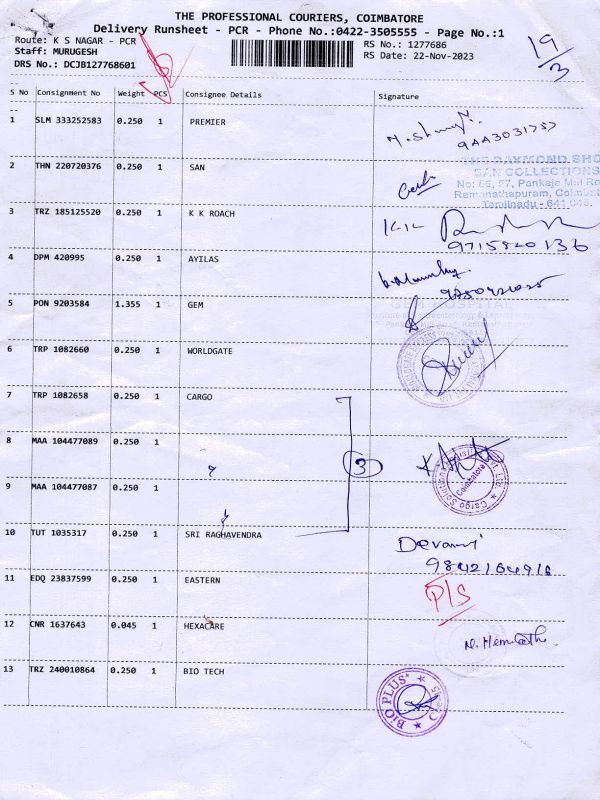 THE PROFESSIONAL COURIERS, COIMBATORE
Delivery Runsheet - PCR - Phone No.:0422-3505555 - Page No.:1
Route: K S NAGAR - PCR
RS No.: 1277686
Staff: MURUGESH
RS Date: 22-Nov-2023
DRS No.: DCJB127768601
19/3
S No Consignment No Weight PCS Consignee Details Signature
1 SLM 333252583 0.250 1 PREMIER
2 THN 220720376 0.250 1 SAN
THE RAYMOND SHO
SAN COLLECTIONS
No: 56, 57, Pankaja Mill Ro
Ramanathapuram, Coimb
Tamilnadu - 641 045.
3 TRZ 185125520 0.250 1 K K ROACH
9715820136
4 DPM 420995 0.250 1 AYILAS
5 PON 9203584 1.355 1 GEM
6 TRP 1082660 0.250 1 WORLDGATE
7 TRP 1082658 0.250 1 CARGO
8 MAA 104477089 0.250 1
3
Cargo Solution
Coimbatore
9 MAA 104477087 0.250 1
10 TUT 1035317 0.250 1 SRI RAGHAVENDRA
11 EDQ 23837599 0.250 1 EASTERN
P/S
12 CNR 1637643 0.045 1 HEXACARE
13 TRZ 240010864 0.250 1 BIO TECH
BIO PLUS